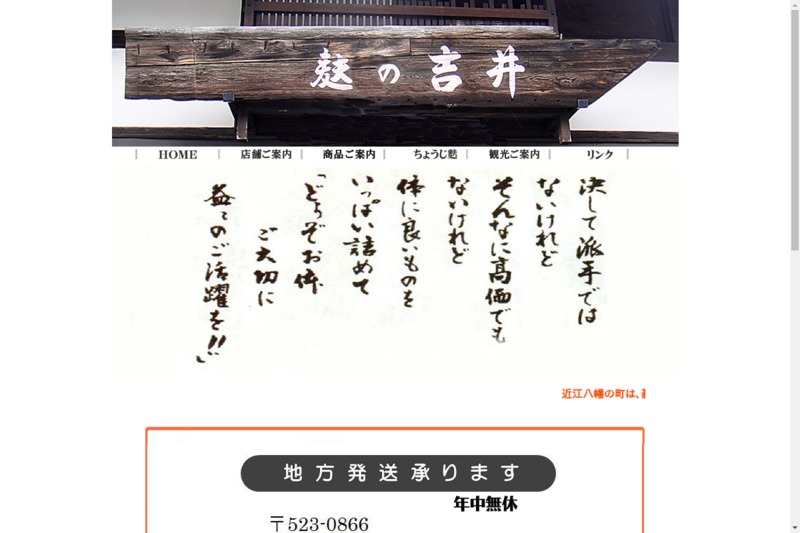 麩の吉井
HOME
店舗ご案内
商品ご案内
ちょうじ麩
観光ご案内
リンク
決して派手では
ないけれど
そんなに高価でも
ないけれど
体に良いものを
いっぱい詰めて
「どうぞお体
ご大切に
益々のご活躍を!!」
近江八幡の町は、
地方発送承ります
年中無休
〒523-0866